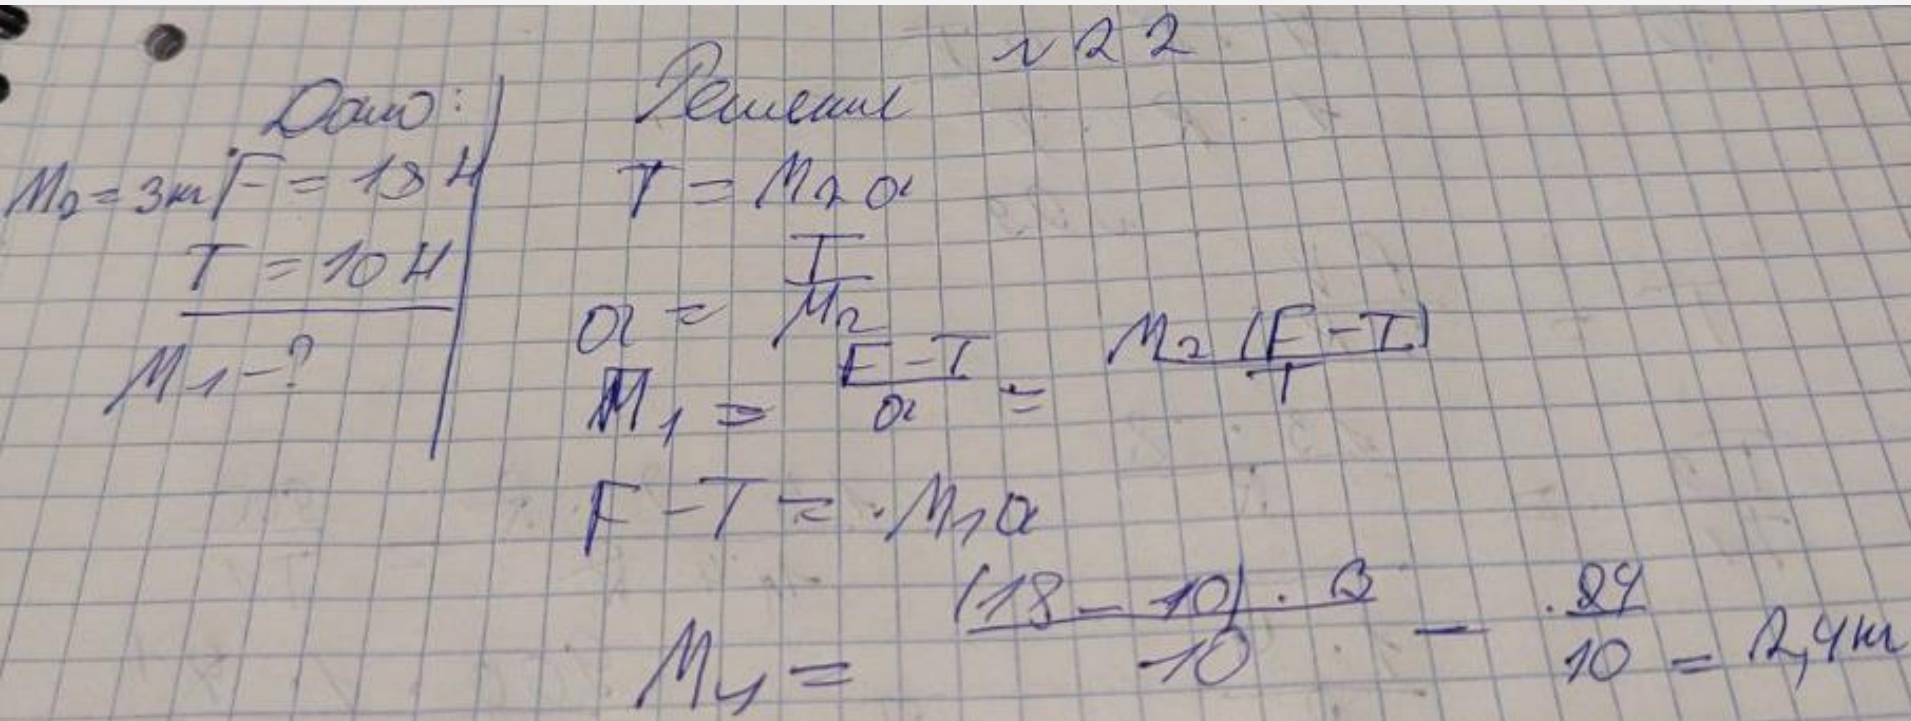 № 22
Дано:
M₂ = 3кг F = 18 Н
T = 10 Н
M₁ - ?
Решение
T = M₂ a
a = T/M₂
M₁ = (F - T)/a = M₂ (F - T)/T
F - T = M₁ a
M₁ = (18 - 10) · 3/10 = 24/10 = 2,4 кг